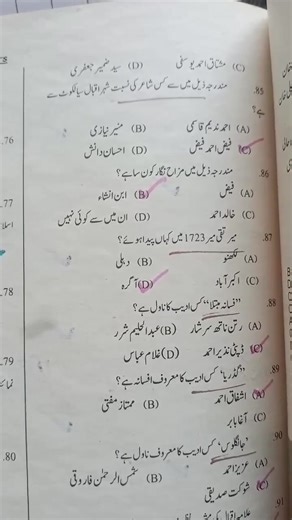 (C) مشتاق احمد یوسفی (D) سید ضمیر جعفری
85. مندرجہ ذیل میں سے کس شاعر کی نسبت شہر اقبال سیالکوٹ سے
ہے؟
(A) احمد ندیم قاسمی (B) منیر نیازی
(C) فیض احمد فیض (D) احسان دانش
86. مندرجہ ذیل میں مزاح نگار کون سا ہے؟
(A) فیض (B) ابن انشاء
(C) خالد احمد (D) ان میں سے کوئی نہیں
87. میر تقی میر 1723 میں کہاں پیدا ہوئے؟
(A) لکھنو (B) دہلی
(C) اکبر آباد (D) آگرہ
88. "فسانہ مبتلا" کس ادیب کا ناول ہے؟
(A) رتن ناتھ سرشار (B) عبدالحلیم شرر
(C) ڈپٹی نذیر احمد (D) غلام عباس
89. "گڈریا" کس ادیب کا معروف افسانہ ہے؟
(A) اشفاق احمد (B) ممتاز مفتی
(C) آغا بابر
90. "جانگلوس" کس ادیب کا معروف ناول ہے؟
(A) عزیز احمد (B) شمس الرحمٰن فاروقی
(C) شوکت صدیقی
91.
76.
77.
78.
79.
80.